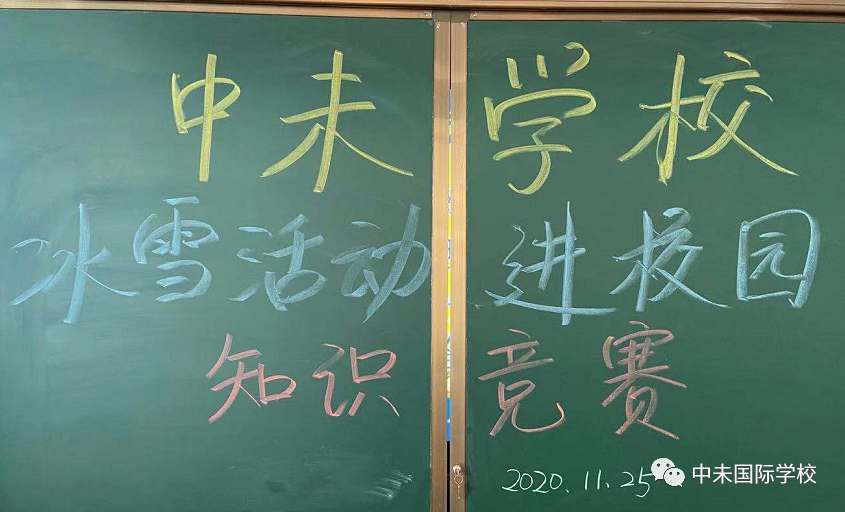 中未学校
冰雪活动进校园
知识竞赛
2020.11.25
中未国际学校